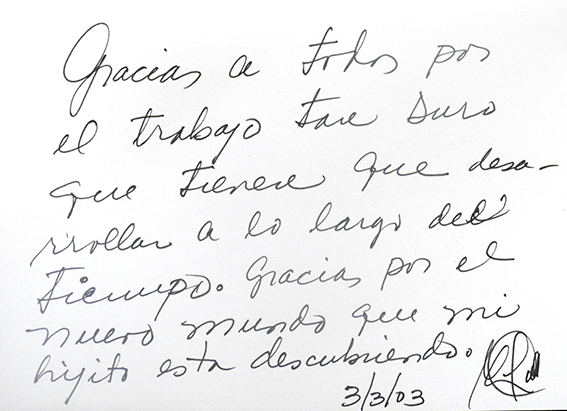 Gracias a todos por
el trabajo tan duro
que tienen que desa-
rrollar a lo largo del
tiempo. Gracias por el
nuevo mundo que mi
hijito esta descubriendo.
3/3/03